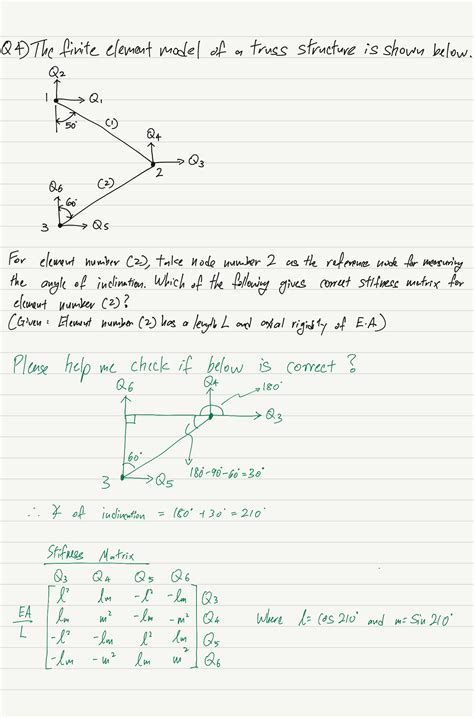 Q4) The finite element model of a truss structure is shown below.
Q2
1 Q1
50° (1)
Q4
Q3
2
Q6 (2)
60°
3 Q5
For element number (2), take node number 2 as the reference node for measuring
the angle of inclination. Which of the following gives correct stiffness matrix for
element number (2)?
(Given: Element number (2) has a length L and axial rigidity of E.A)
Please help me check if below is correct?
Q6 Q4 180°
Q3
60°
180-90-60=30°
3 Q5
∴ ∠ of inclination = 180° + 30° = 210°
Stiffness Matrix
Q3 Q4 Q5 Q6
l² lm -l² -lm Q3
EA lm m² -lm -m² Q4 Where l = cos 210° and m = sin 210°
L -l² -lm l² lm Q5
-lm -m² lm m² Q6